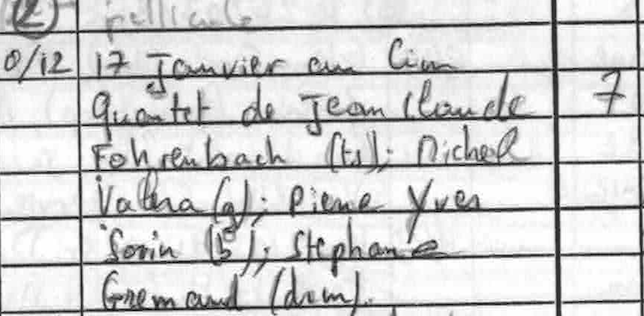 (2)
0/12 17 Janvier au Cim
Quartet de Jean Claude 7
Fohrenbach (ts); Michel
Valera (g); Pierre Yves
Sorin (b); Stephane
Gremaud (dum).